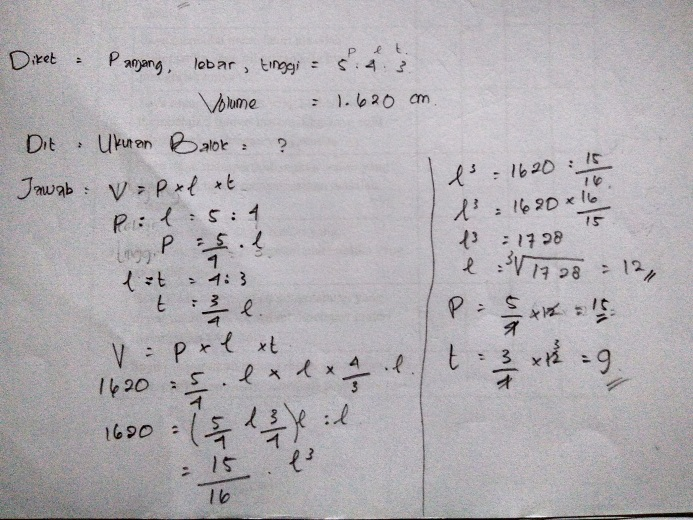 p l t.
Diket = Panjang, lebar, tinggi = 5 : 4 : 3
Volume = 1.620 cm.
Dit : Ukuran Balok = ?
Jawab : V = P x l x t
P : l = 5 : 4
P = 5/4 . l
l : t = 4 : 3
t : 3/4 l.
V = P x l x t
1620 = 5/4 . l x l x 4/3 . l.
1620 = (5/4 l 3/4) l : l
= 15/16 . l³
l³ = 1620 : 15/16.
l³ = 1620 x 16/15
l³ = 1728
l = ³√1728 = 12
P = 5/4 x 12 = 15
t = 3/4 x 12 3 = 9